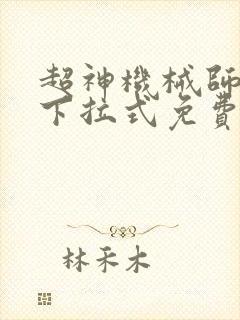 超神機械師
下拉式免費
林禾木